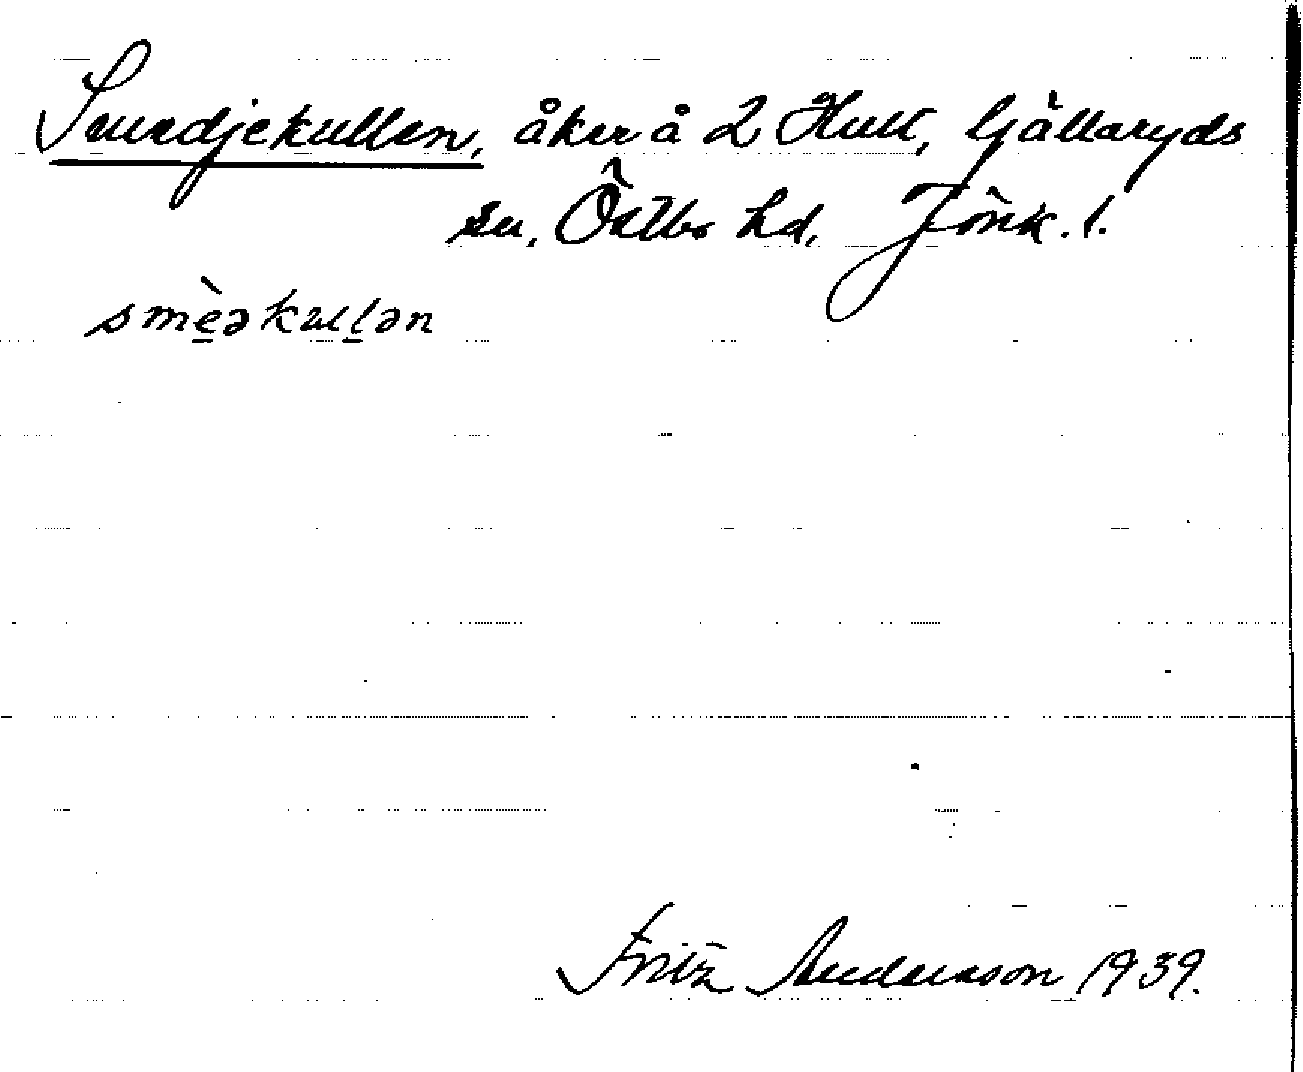 Smedjekullen, åker å 2 Hult, Gällaryds
sn, Östbo hd, Jönk. l.
smèəkullən
Fritz Andersson 1939.